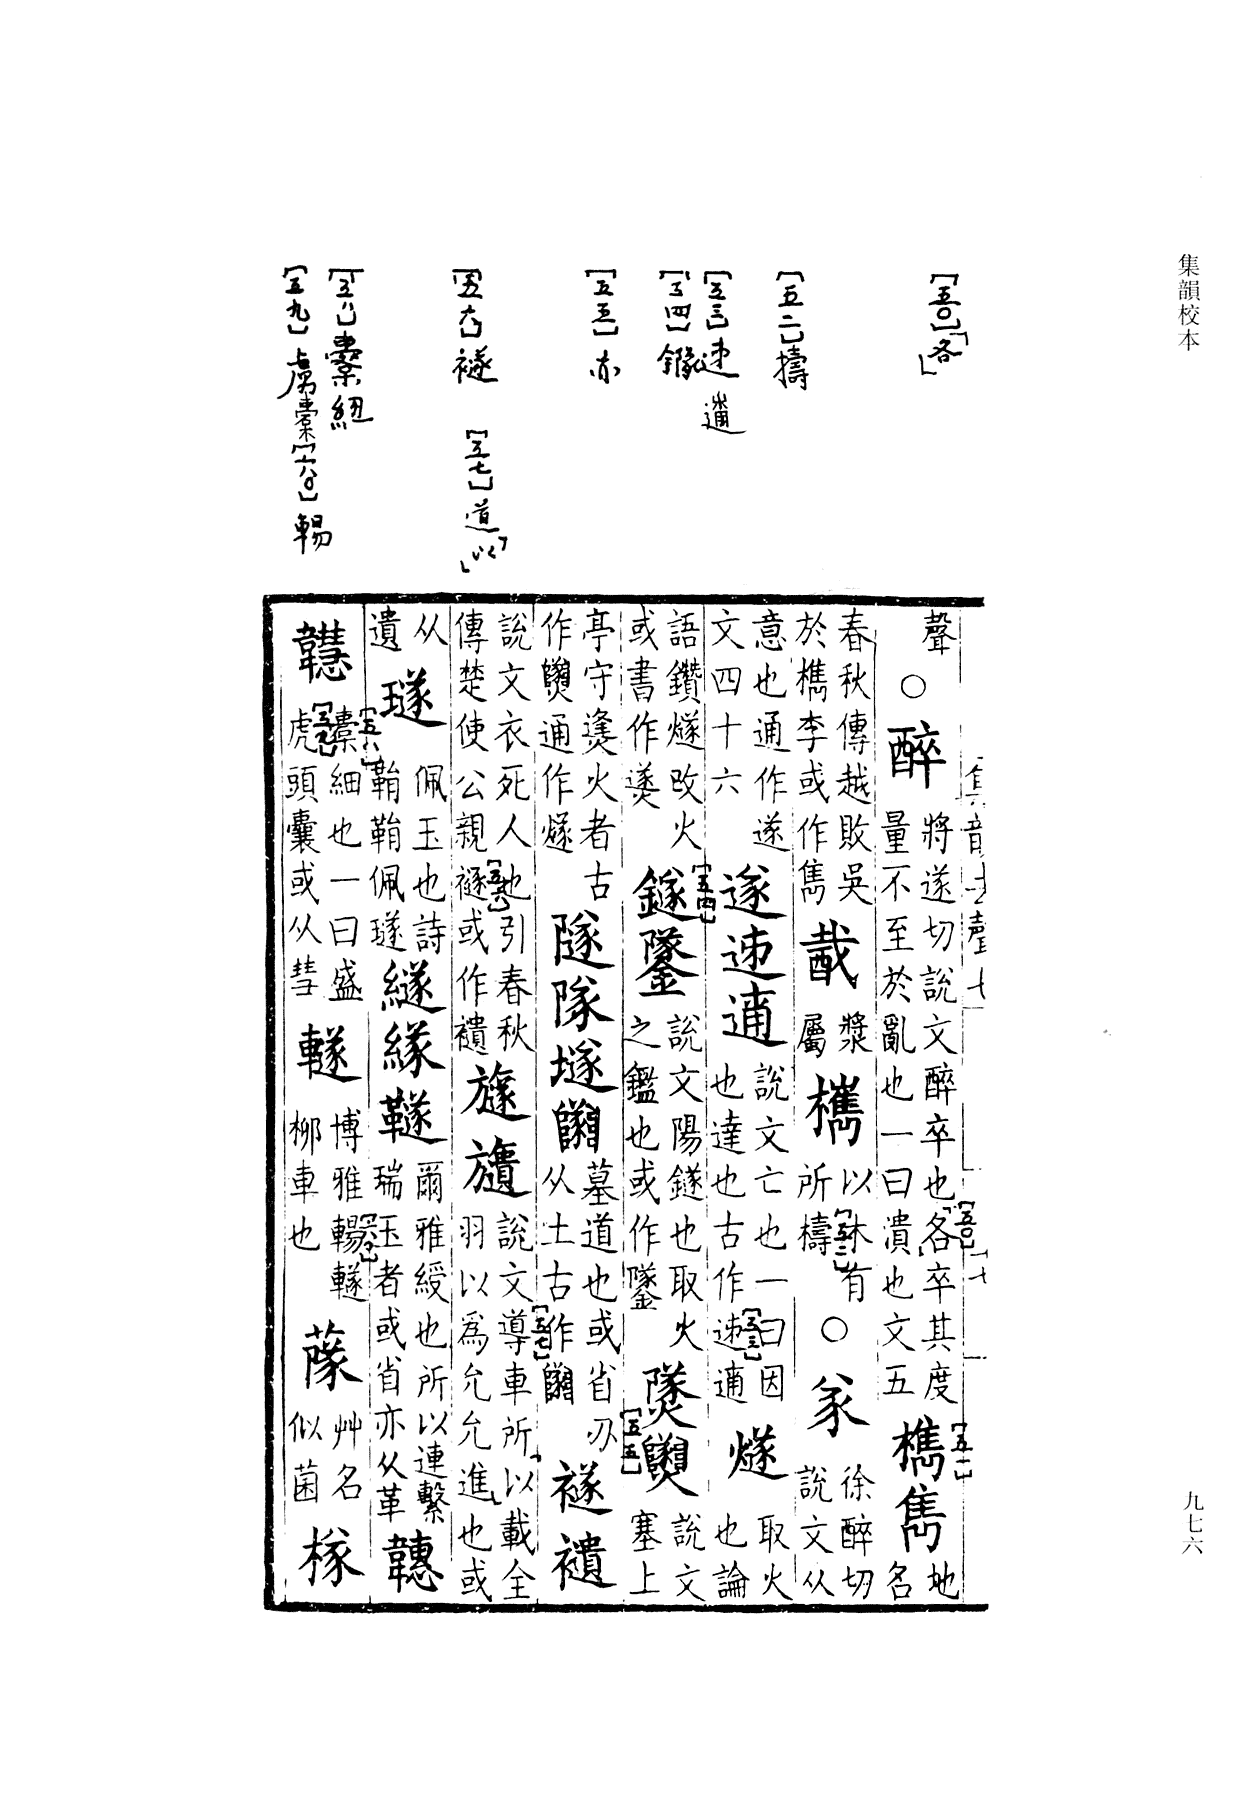 集韻校本
九七六
[五〇]「各」
[五二]擣
[五三]𨒉𨘹
[五四]鐌
[五五]亦
[五六]襚
[五七]道「以」
[五八]橐紐
[五九]虜橐[六〇]輰
集韻去聲七
聲○醉將遂切說文醉卒也「各」[五〇]卒其度量不至於亂也一曰潰也文五檇雋[五一]地名
春秋傳越敗吳於檇李或作雋𢧵漿屬檇以木有所檮[五二]○㒸徐醉切說文从
意也通作遂文四十六遂𨒉𨘹說文亡也一曰因也達也古作𨒉𨘹[五三]燧取火也論
語鑽燧改火或書作㸂鐩鐆[五四]說文陽鐩也取火之鑑也或作鐆㸂𨽵[五五]說文塞上
亭守㷭火者古作𨽵通作燧隧隊墜𨽿墓道也或省亦从土古作𨽿襚䙡
說文衣死人也引春秋傳楚使公親襚[五六]或作䙡旞𣄧說文導車所「以」載全羽以爲允允進[五七]也或
从遺璲佩玉也詩鞙鞙佩璲繸緣䥙爾雅綬也所以連繫瑞玉者或省亦从革韢
𩏶橐[五八]細也一曰盛虎[五九]頭囊或从彗䡵博雅輰[六〇]䡵柳車也蓫艸名似菌檖